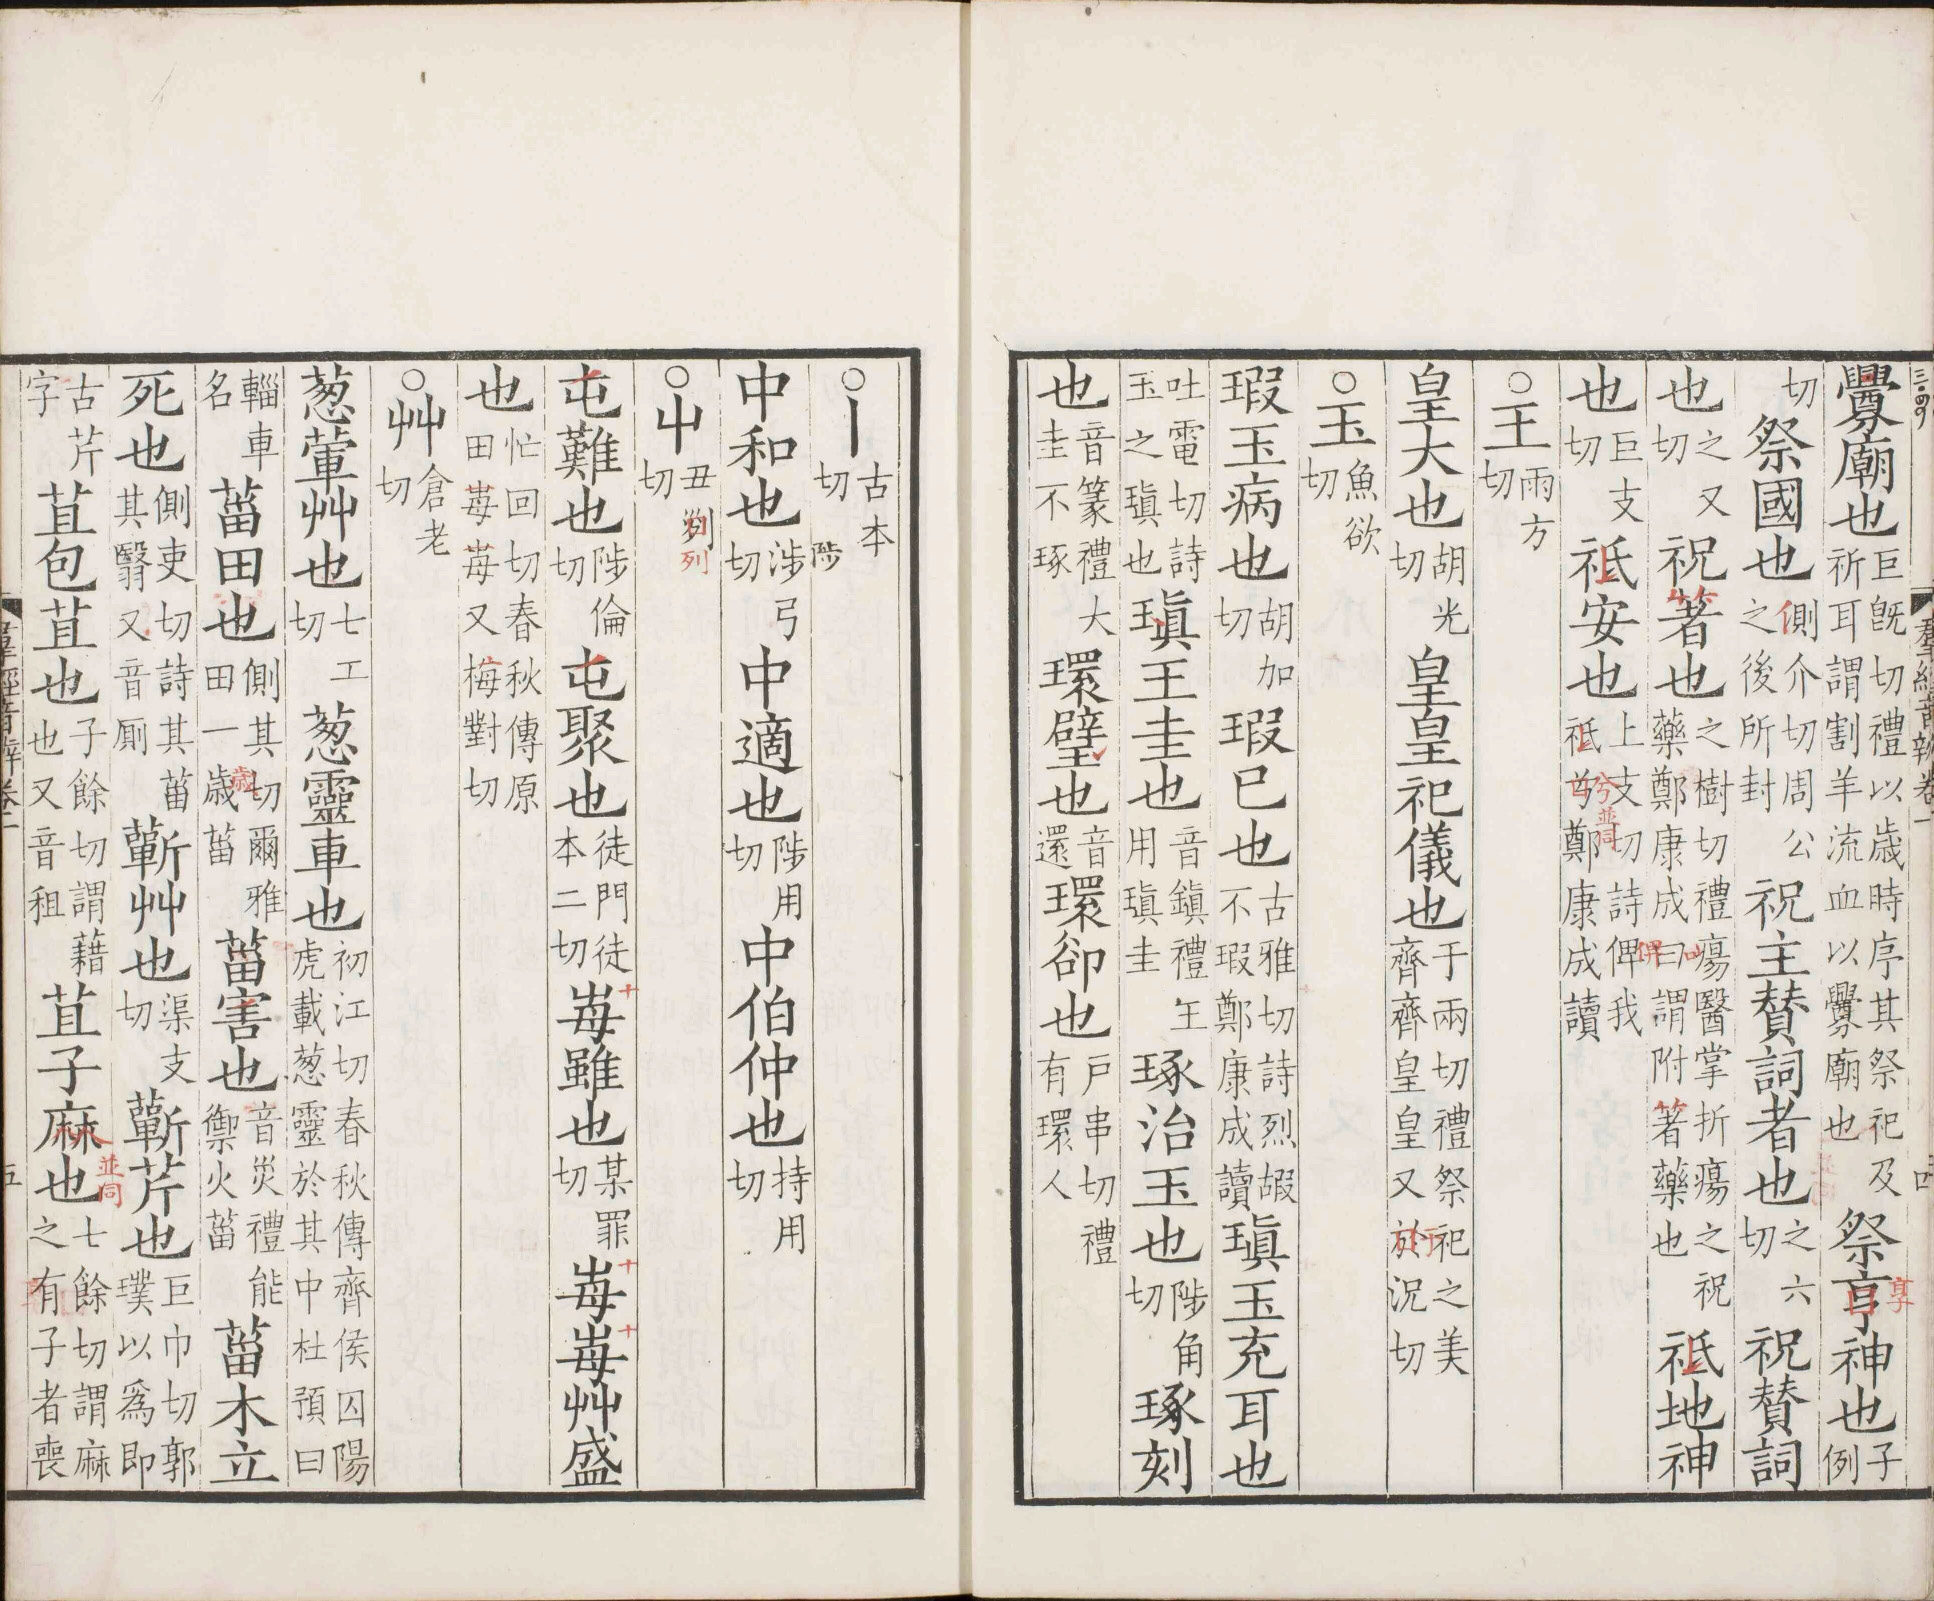 釁廟也巨旣切禮以歲時序其祭祀及祈耳謂割羊流血以釁廟也祭享神也子例
切祭國也側介切周公之後所封祝主贊詞者也之六切祝贊詞
也之又切祝著也之樹切禮瘍醫掌折瘍之祝藥鄭康成曰謂附著藥也祇地神
也巨支切祇安也上支切詩俾我祇兮鄭康成讀
○王雨方切
皇大也胡光切皇皇祀儀也于兩切禮祭祀之美齊齊皇皇又於況切
○玉魚欲切
瑕玉病也胡加切瑕已也古雅切詩烈嘏不瑕鄭康成讀瑱玉充耳也
吐電切詩玉之瑱也瑱王圭也音鎮禮王用瑱圭琢治玉也陟角切琢刻
也音篆禮大圭不琢環璧也音還環卻也戶串切禮有環人
群經音辨卷一 四
○丨古本切
中和也涉弓切中適也陟用切中伯仲也持用切
陟
○屮丑列切
屯難也陟倫切屯聚也徒門徒本二切每雖也某罪切每每艸盛
也忙回切春秋傳原田每每又梅對切
○艸倉老切
葱葷艸也七工切葱靈車也初江切春秋傳齊侯囚陽虎載葱靈於其中杜預曰
輜車名菑田也側其切爾雅田一歲菑菑害也音災禮能禦火菑菑木立
死也側吏切詩其菑其翳又音厠蘄艸也渠支切蘄芹也巨巾切郭璞以爲即
古芹字苴包苴也子餘切謂藉也又音租苴子麻也七餘切謂麻之有子者喪
群經音辨卷一 五